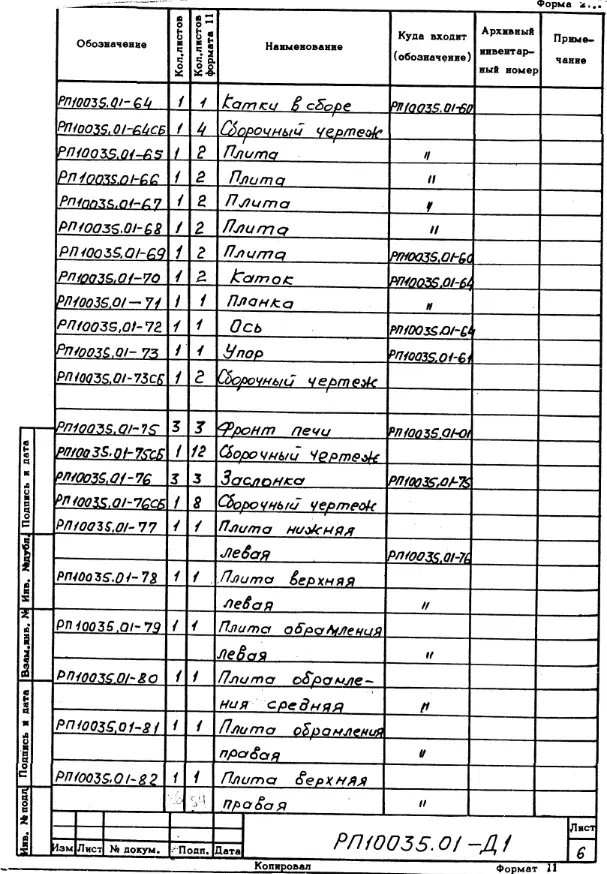 Форма 2...
Обозначение Кол.листов Кол.листов формата 11 Наименование Куда входит (обозначение) Архивный инвентарный номер Примечание
РП10035.01-64 1 1 Катки в сборе РП10035.01-60
РП10035.01-64СБ 1 4 Сборочный чертеж
РП10035.01-65 1 2 Плита "
РП10035.01-66 1 2 Плита "
РП10035.01-67 1 2 Плита "
РП10035.01-68 1 2 Плита "
РП10035.01-69 1 2 Плита РП10035.01-60
РП10035.01-70 1 2 Каток РП10035.01-64
РП10035.01-71 1 1 Планка "
РП10035.01-72 1 1 Ось РП10035.01-64
РП10035.01-73 1 1 Упор РП10035.01-61
РП10035.01-73СБ 1 2 Сборочный чертеж
РП10035.01-75 3 3 Фронт печи РП10035.01-01
РП10035.01-75СБ 1 12 Сборочный чертеж
РП10035.01-76 3 3 Заслонка РП10035.01-75
РП10035.01-76СБ 1 8 Сборочный чертеж
РП10035.01-77 1 1 Плита нижняя
левая РП10035.01-76
РП10035.01-78 1 1 Плита верхняя
левая "
РП10035.01-79 1 1 Плита обрамления
левая "
РП10035.01-80 1 1 Плита обрамле-
ния средняя "
РП10035.01-81 1 1 Плита обрамления
правая "
РП10035.01-82 1 1 Плита верхняя
правая "
54
Инв. № подл. Подпись и дата Взам.инв. № Инв. №дубл. Подпись и дата
Изм Лист № докум. Подп. Дата
РП10035.01-Д1
Лист
6
Копировал Формат 11